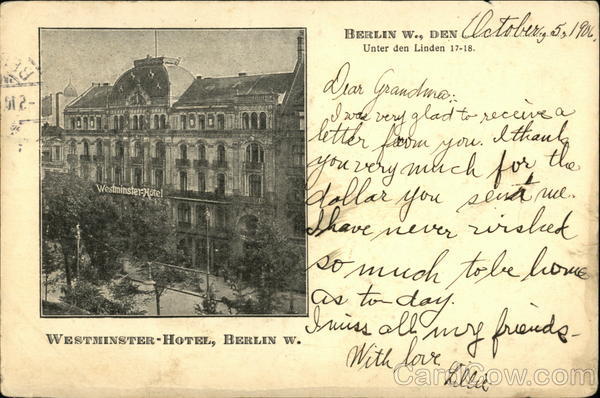 Berlin W., den October, 5, 1906
Unter den Linden 17-18.
Dear Grandma:
I was very glad to receive a
letter from you. I thank
you very much for the
dollar you sent me.
I have never wished
so much to be home
as to-day.
I miss all my friends-
With love
Lillie
Westminster-Hotel
Westminster-Hotel, Berlin W.
CardCow.com